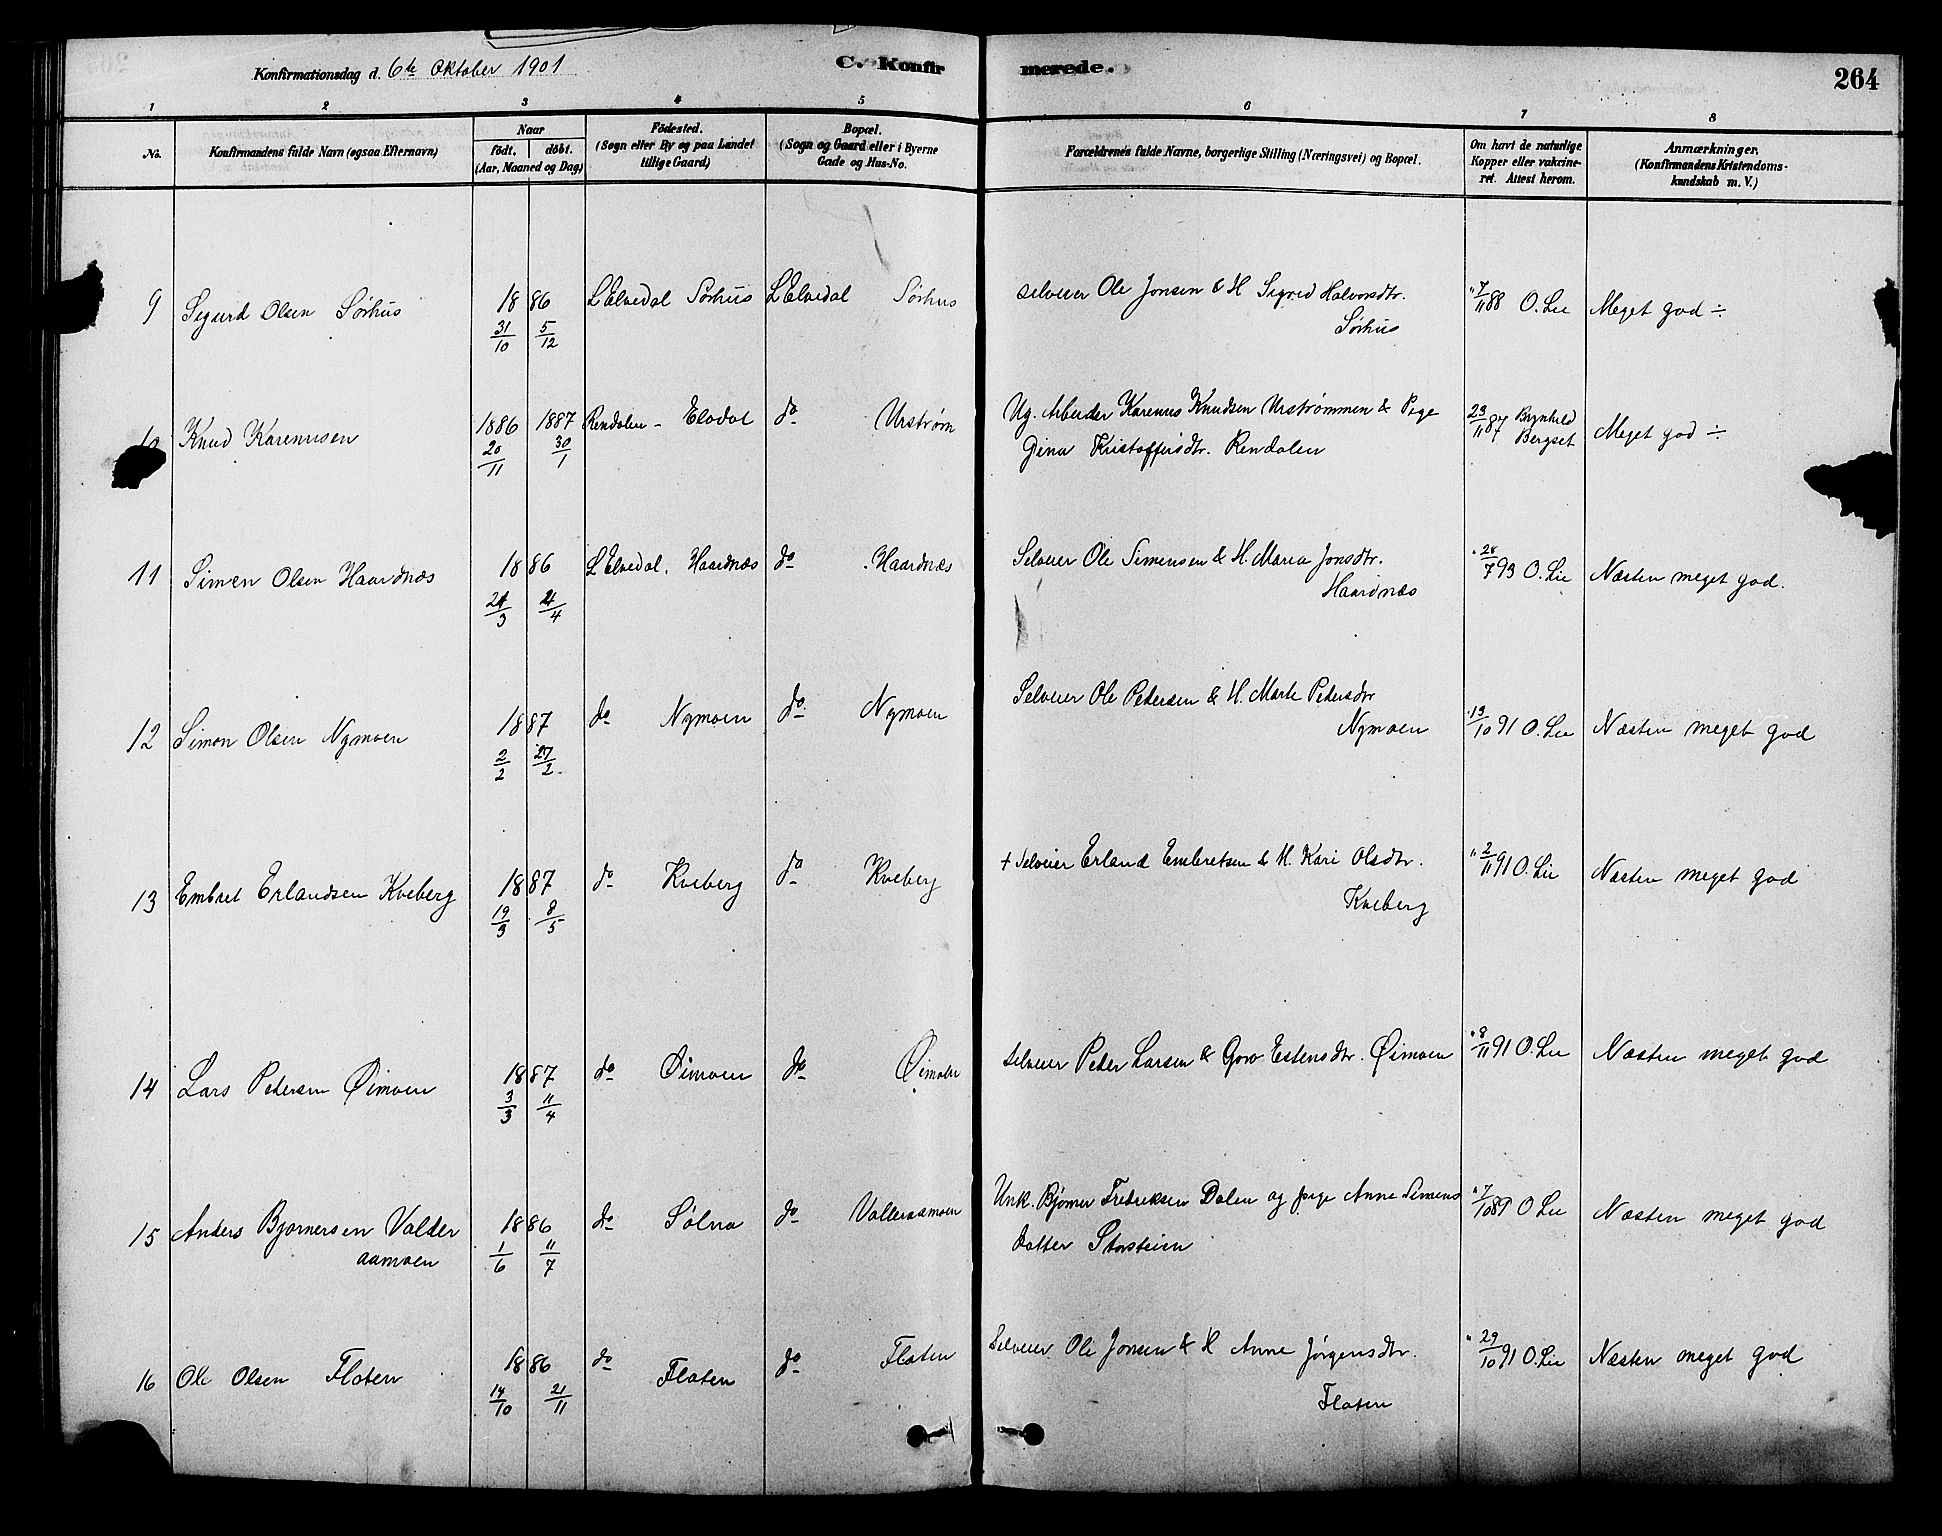 Konfirmationsdag d. 6te Oktober 1901
C. Konfirmerede.
264
1 2 3 4 5 6 7 8
No.
Konfirmandens fulde Navn (ogsaa Efternavn)
Naar
födt. döbt.
(Aar, Maaned og Dag)
Födested.
(Sogn eller By og paa Landet
tillige Gaard)
Bopæl.
(Sogn og Gaard eller i Byerne
Gade og Hus-No.
Forældrenes fulde Navne, borgerlige Stilling (Næringsvei) og Bopæl.
Om havt de naturlige
Kopper eller vakcine-
ret. Attest herom.
Anmærkninger,
(Konfirmandens Kristendoms-
kundskab m. V.)
9 Sigurd Olsen Sørhus 1886 31/10 5/12 L Elvedal Sørhus L Elvedal Sørhus Selveier Ole Jonsen & H. Sigrid Halvorsdtr. 7/11 88 O. Lie Meget god ÷
Sørhus
10 Knud Karenusen 1886 20/11 1887 30/1 Rendalen - Elvdal do Urstrøm Ug. Arbeider Karenus Knudsen Urstrømmen & Pige 23/11 87 Brynhild Bergset Meget god ÷
Dina Kristoffersdtr. Rendalen
11 Simen Olsen Haardnæs 1886 24/3 /4 L Elvedal. Haardnæs do Haardnæs Selveier Ole Simensen & H. Maria Jonsdtr. 28/7 93 O. Lie Næsten meget god.
Haardnæs
12 Simon Olsen Nymoen 1887 2/2 27/2 do Nymoen do Nymoen Selveier Ole Petersen & H. Marte Petersdtr 13/10 91 O. Lie Næsten meget god
Nymoen
13 Embret Erlandsen Kveberg 1887 19/3 8/5 do Kveberg do Kveberg + Selveier Erland Embretsen & H. Kari Olsdtr. 2/11 91 O. Lie Næsten meget god
Kveberg
14 Lars Petersen Øimoen 1887 3/3 11/4 do Øimoen do Øimoen Selveier Peder Larsen & Goro Estensdtr. Øimoen 8/11 91 O. Lie Næsten meget god
15 Anders Bjørnersen Valder 1886 1/6 11/7 do Sølna do Valleraamoen Unk. Bjørner Fredriksen Dalen og pige Anne Simens 7/10 89 O Lie Næsten meget god
aamoen datter Storsteien
16 Ole Olsen Floten 1886 14/10 21/11 do Floten do Floten Selveier Ole Jonsen & H Anne Jørgensdtr. 29/10 91 O. Lie Næsten meget god
Floten